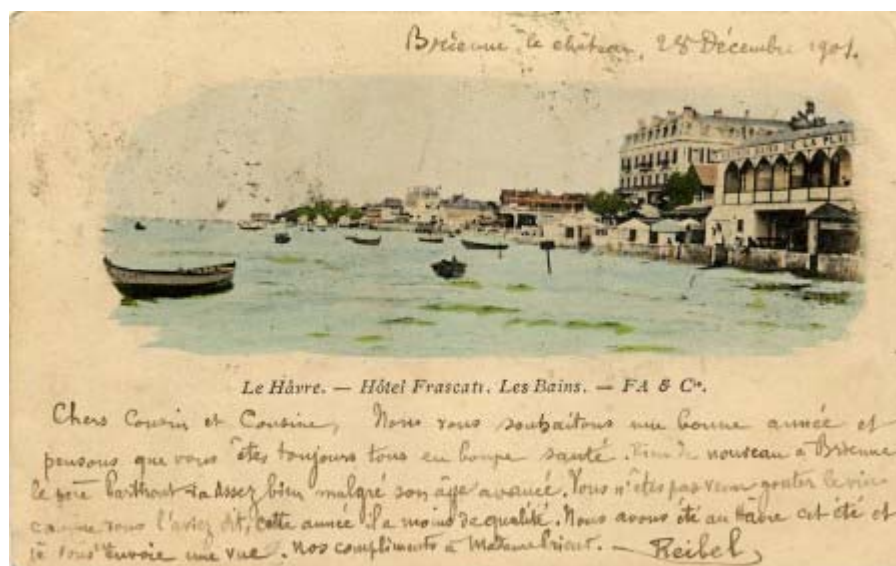 Brienne le château, 28 Décembre 1901.
DE LA PLA
Le Hâvre. — Hôtel Frascati. Les Bains. — FA & Cie.
Chers Cousin et Cousine, Nous vous souhaitons une bonne année et
pensons que vous êtes toujours tous en bonne santé. Rien de nouveau à Brienne
le père va assez bien malgré son âge avancé. Vous n'êtes pas venu gouter le vin
comme vous l'aviez dit, cette année il a moins de qualité. Nous avons été au Hâvre cet été et
je vous envoie une vue. Nos compliments à Madame — Reibel